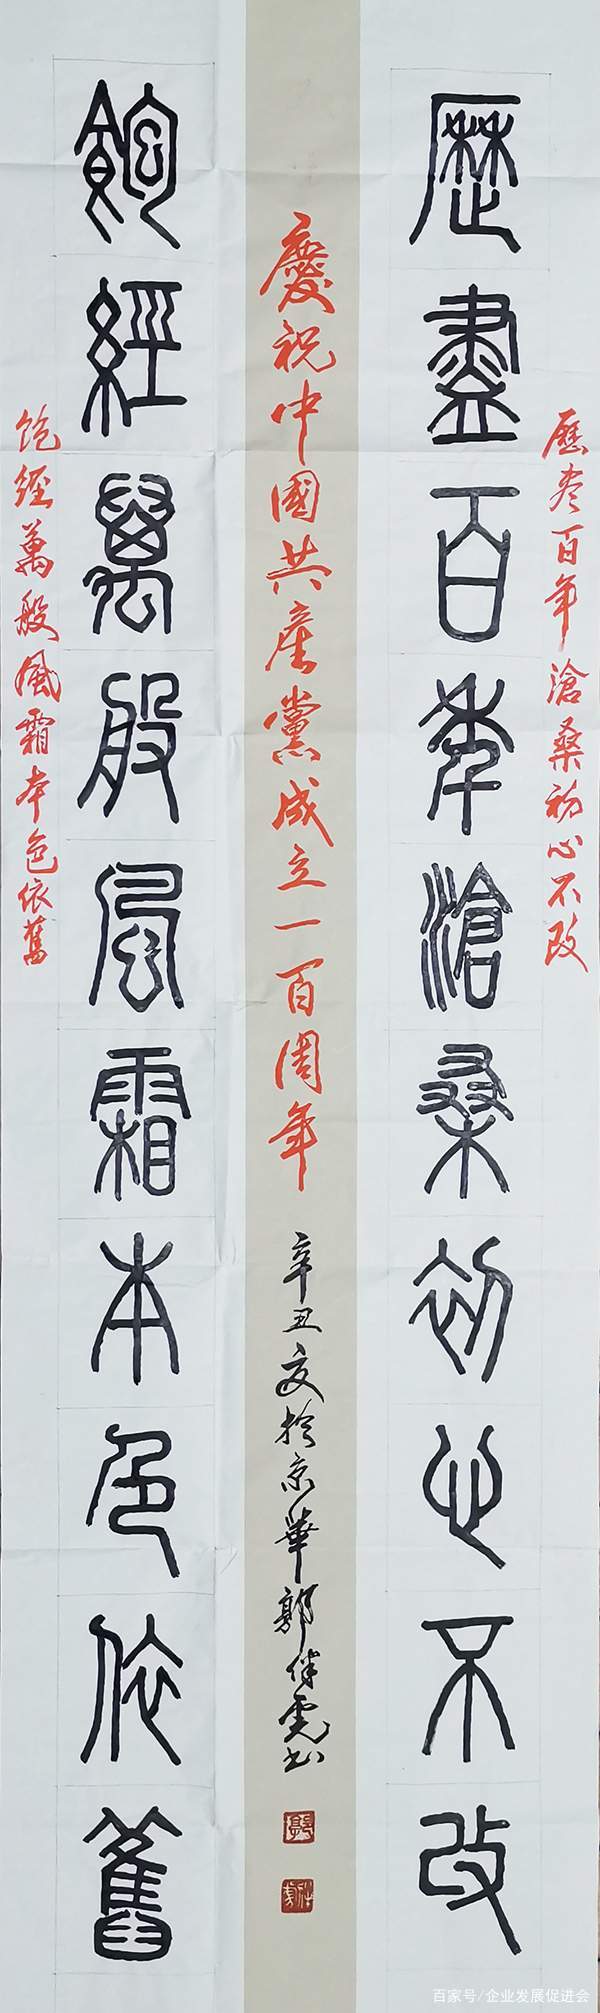 歷盡百年滄桑初心不改
歷尽百年滄桑初心不改
慶祝中國共産黨成立一百周年
辛丑夏於京華郭 書
飽經萬般風霜本色依舊
饱經萬般風霜本色依舊
百家号/企业发展促进会